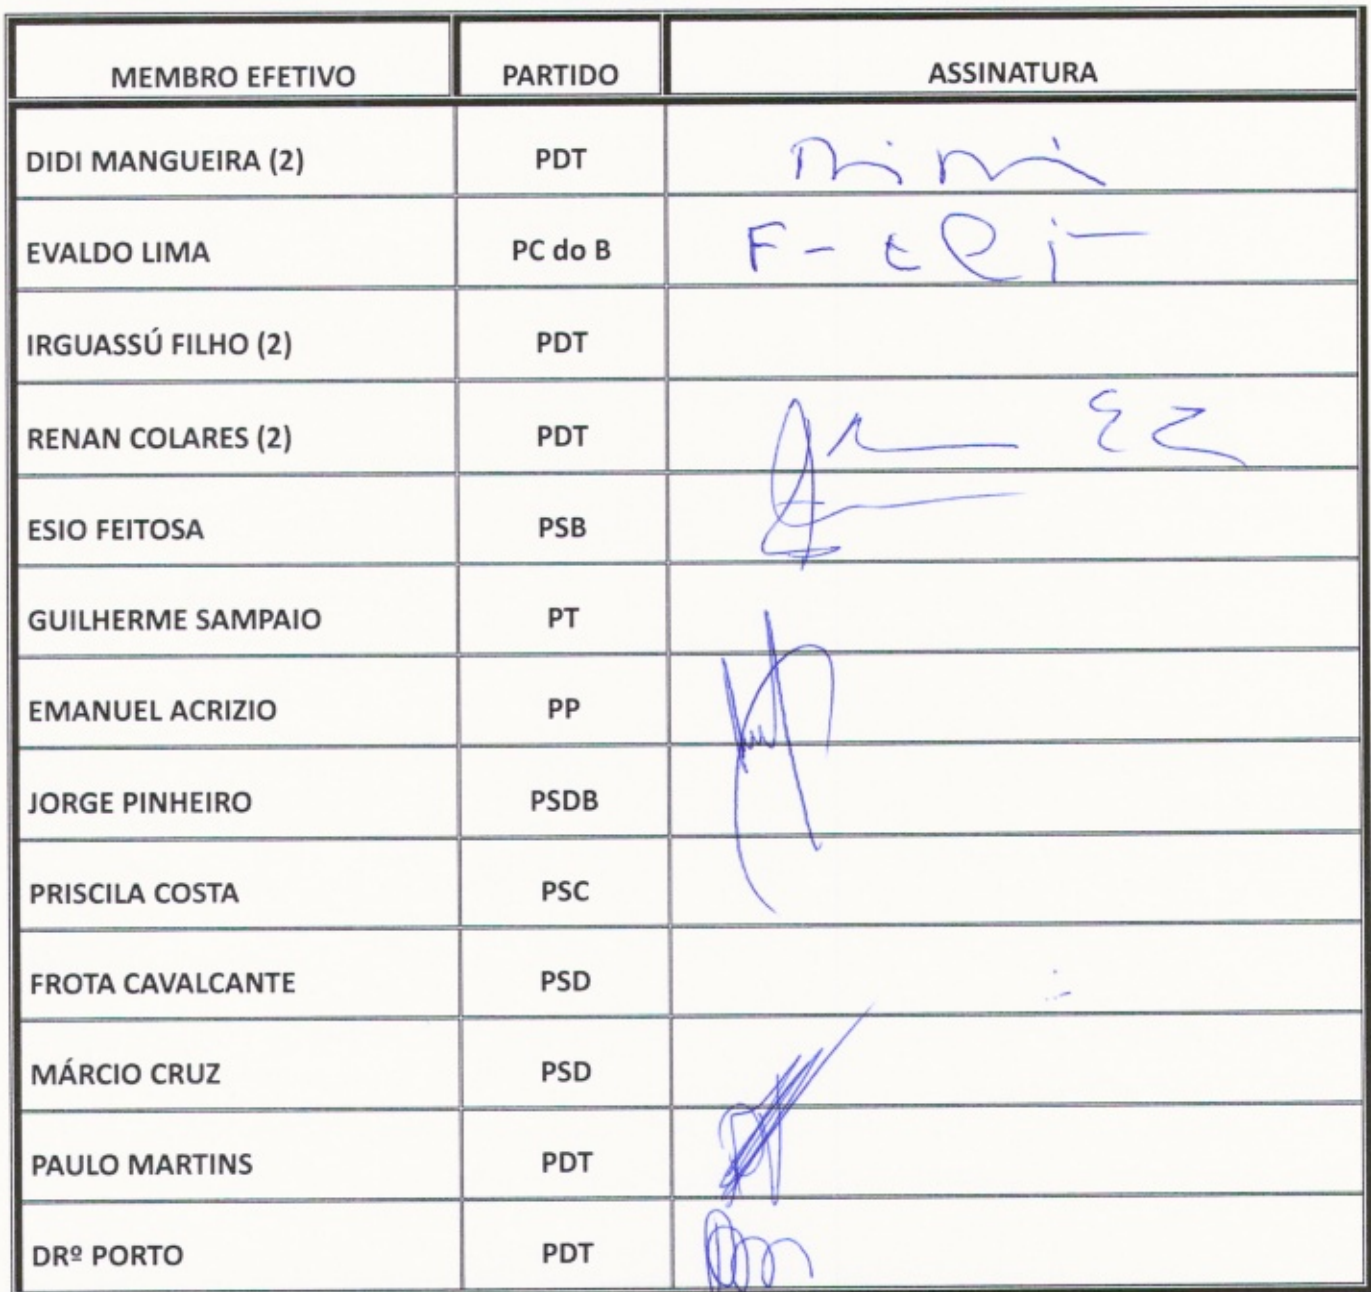 MEMBRO EFETIVO PARTIDO ASSINATURA
DIDI MANGUEIRA (2) PDT
EVALDO LIMA PC do B
IRGUASSÚ FILHO (2) PDT
RENAN COLARES (2) PDT
ESIO FEITOSA PSB
GUILHERME SAMPAIO PT
EMANUEL ACRIZIO PP
JORGE PINHEIRO PSDB
PRISCILA COSTA PSC
FROTA CAVALCANTE PSD
MÁRCIO CRUZ PSD
PAULO MARTINS PDT
DRº PORTO PDT